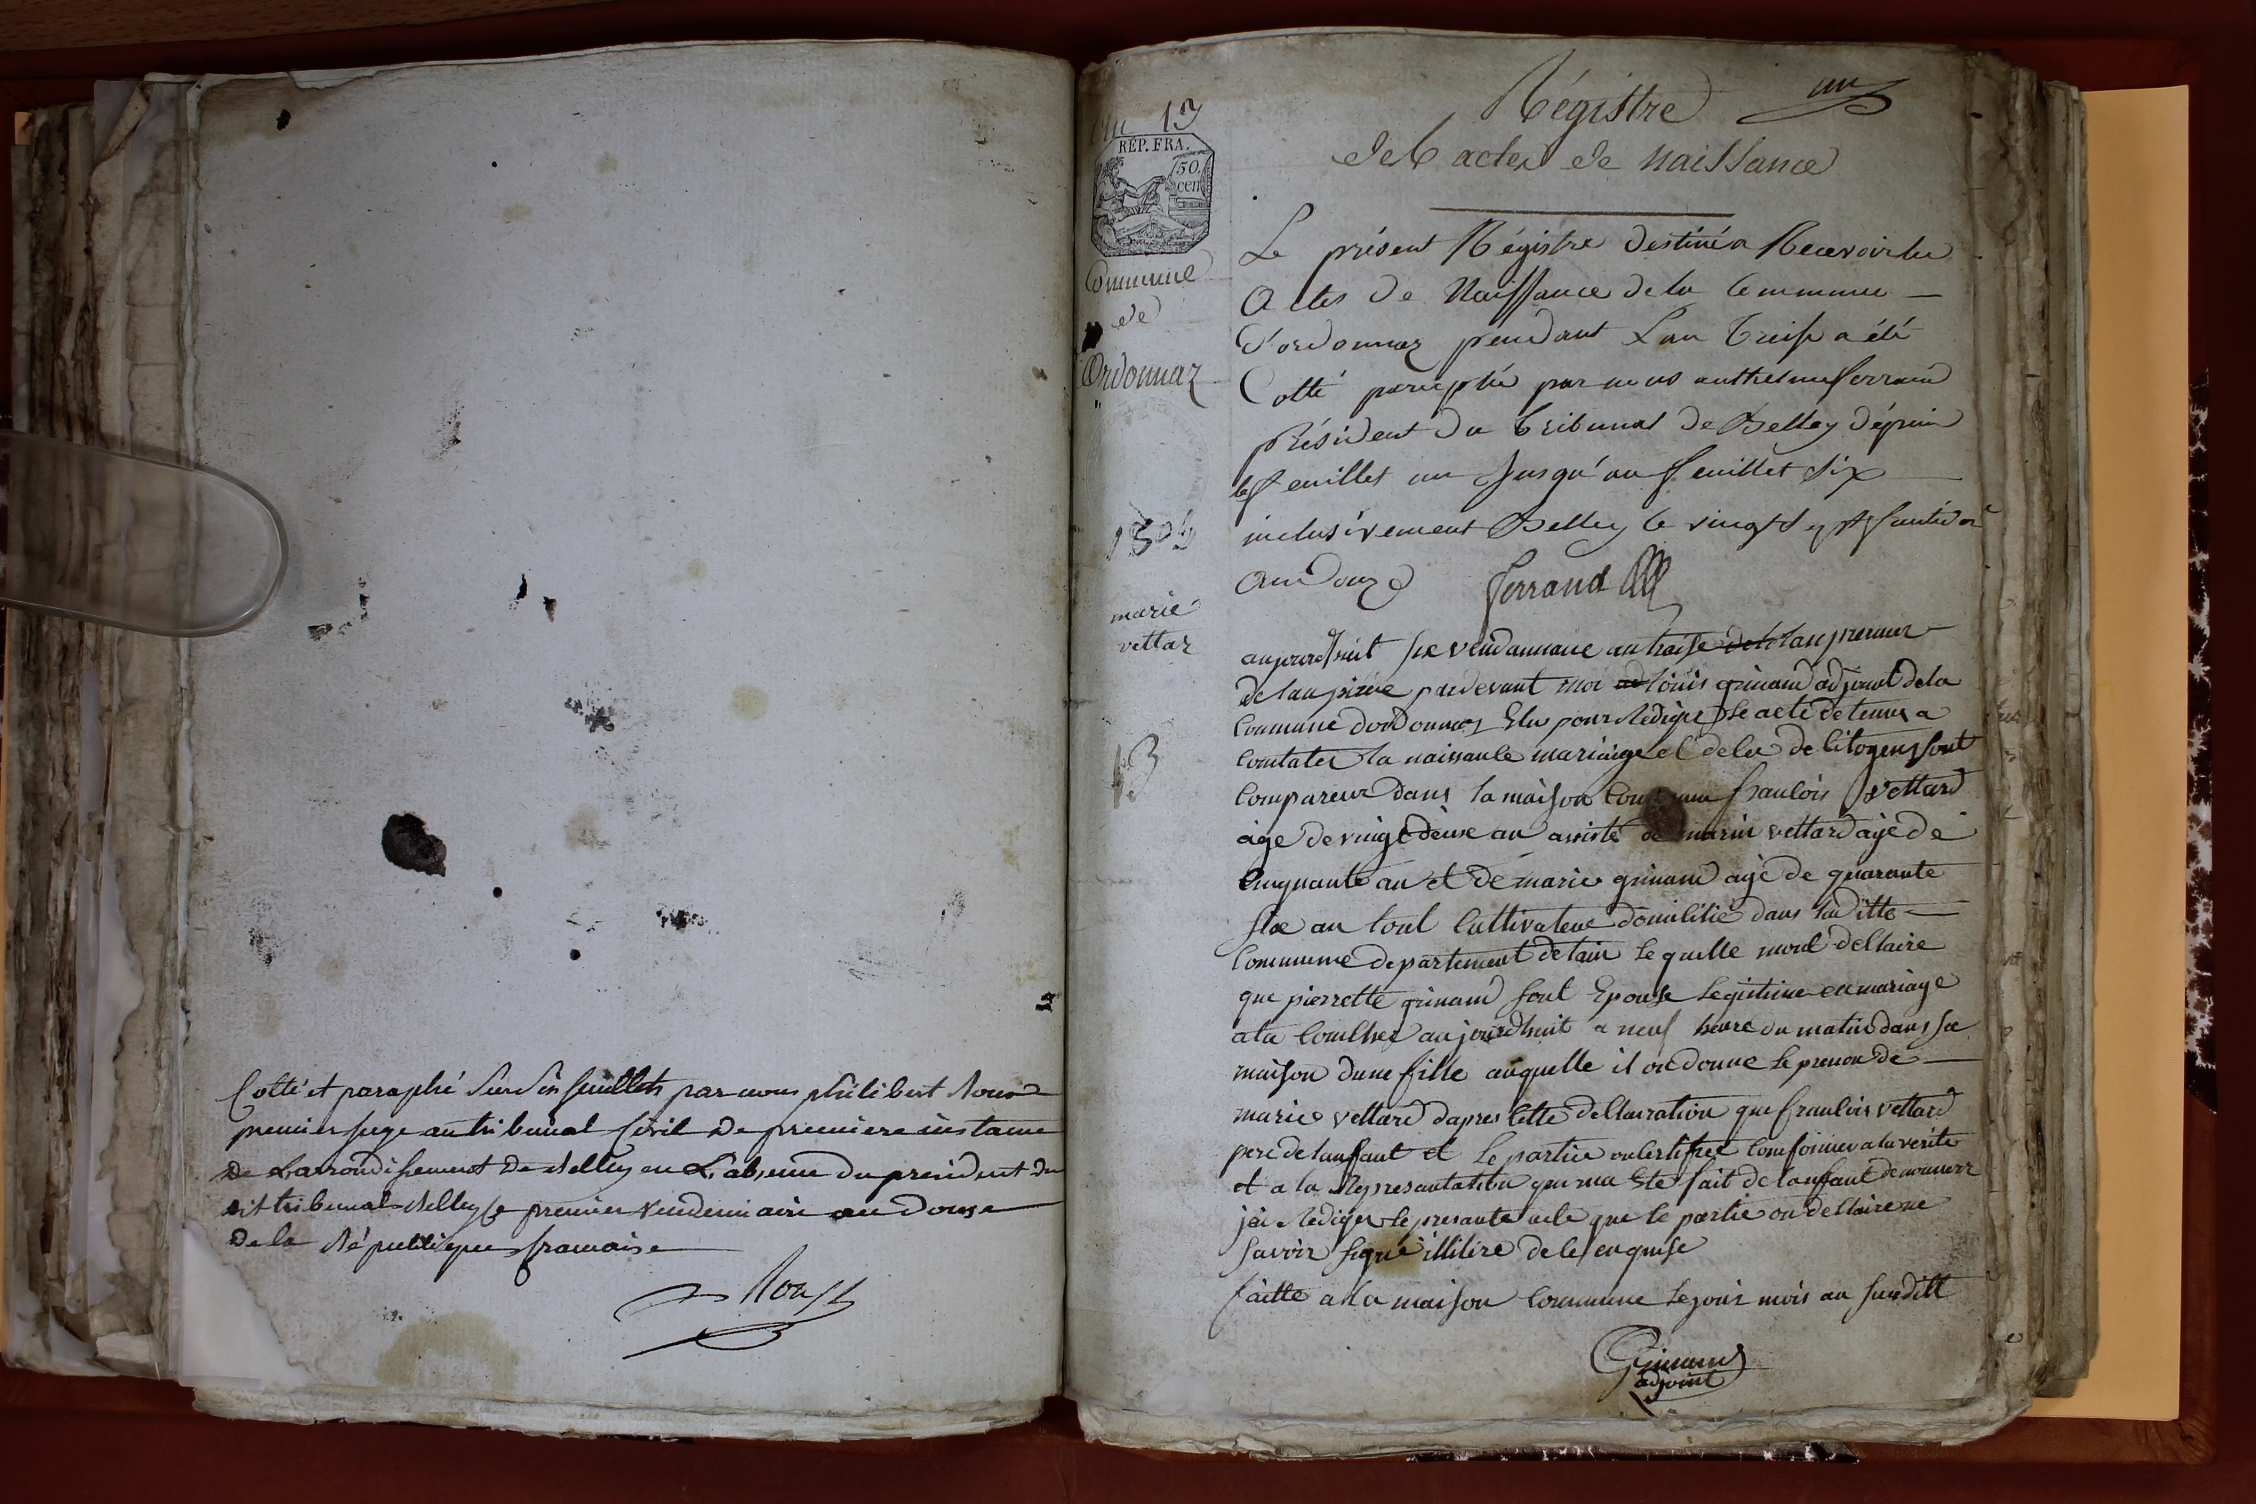 Cotté et paraphé sur six feuillets par nous philibert Roux
premier juge au tribunal Civil de premiere instance
de L'arrondissement de Belley en L'absence du president du
dit tribunal Belley le premier vendemiaire an douze
de la République francaise
Roux
an 13
RÉP. FRA.
50
cen
Commune
de
Ordonnaz
1804
marie
vettar
13
Régistre
un
des actes de naissance
Le présent Régistre destiné a Recevoir les
Actes de Naissance de la Commune
d'ordonnaz pendant L'an treise a été
Cotté paraphé par nous anthelme ferrand
Président du tribunal de Belley depuis
le feuillet un Jusqu'au feuillet six
inclusivement Belley le vingt sept fructidor
an Douze
ferrand
aujourdhuit six vendannaire an traise de lan premier
de lanpire pardevant moi ad louis grinand adjount de la
Commune dordonnaz Elu pour Rediger le acte detenus a
Contater la naissance mariaige et deces de Citoyens sont
Compareux dans la maison Commune francois vettard
age de vingt deuse an assisté de marin vettard aijé de
Cinquante an et de marie grinand aijé de quarante
six an tout Cultivateur domilitié dans laditte
Commune departement de lain le quelle mont dellaire
que pierrette grinand sont Epouse legitime en mariage
ata Couchee aujourdhuit a neuf heure du matin dans sa
maison dune fille auquelle il on donne le prenon de
marie vettard dapres cette dellairation que francois vettard
pere de lanffant et le partie on certifiee Conforme a la verite
et a la Represantation qui ma Ete fait de lanffant denommer
jai Rediger le presante acte que le partie on dellaire ne
savoir signé illitere de ce enquise
faitte a la maison Commune le jour mois an surditt
Grinand
adjoint